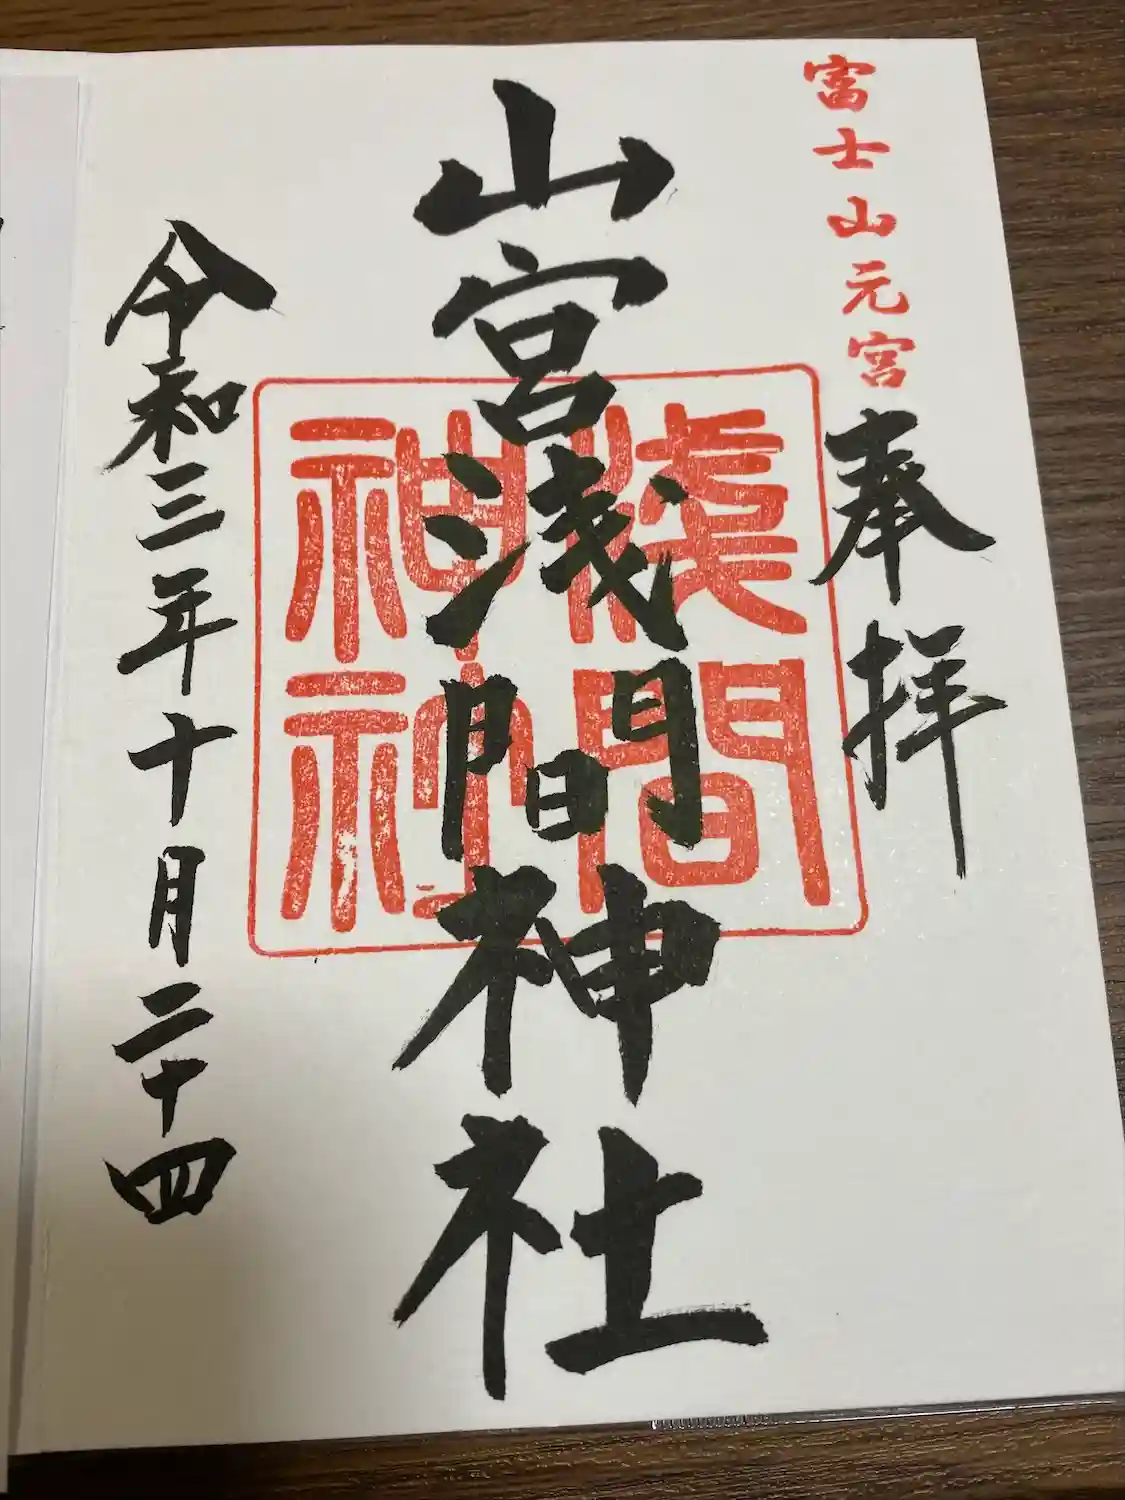 富士山元宮
奉拝
山宮浅間神社
浅間
神社
令和三年十月二十四